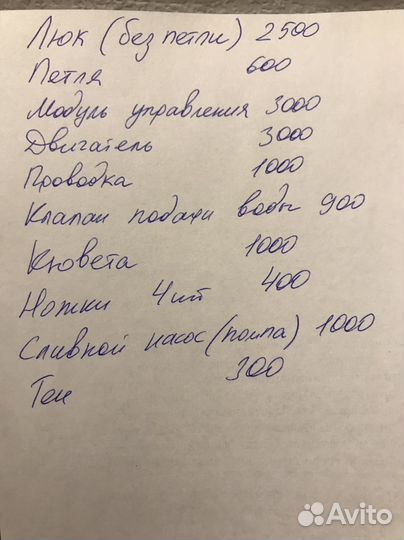 Люк (без петли) 2500
Петля 600
Модуль управления 3000
Двигатель 3000
Проводка 1000
Клапан подачи воды 900
Кювета 1000
Ножки 4 шт 400
Сливной насос (помпа) 1000
Тен 300
Avito